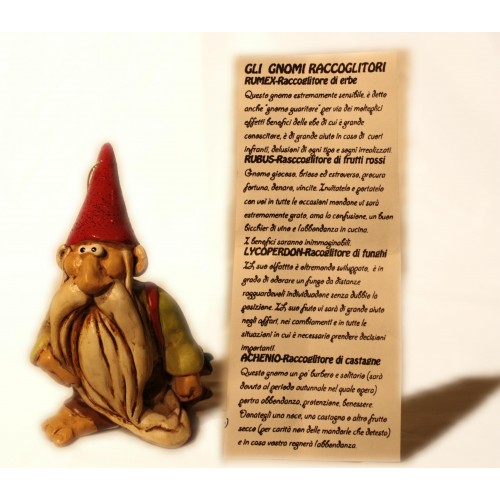 GLI GNOMI RACCOGLITORI
RUMEX-Raccoglitore di erbe
Questo gnomo estremamente sensibile, è detto
anche "gnomo guaritore" per via dei molteplici
effetti benefici delle ebe di cui è grande
conoscitore, è di grande aiuto in caso di cuori
infranti, delusioni di ogni tipo e sogni irrealizzati.
RUBUS-Rasccoglitore di frutti rossi
Gnomo giocoso, brioso ed estroverso, procura
fortuna, denaro, vincite. Invitatelo e portatelo
con voi in tutte le occasioni mondane vi sarà
estremamente grato, ama la confusione, un buon
bicchier di vino e l'abbondanza in cucina.
I benefici saranno inimmaginabili.
LYCOPERDON-Raccoglitore di funghi
suo olfatto è oltremodo sviluppato, è in
grado di odorare un fungo da distanze
ragguardevoli individuandone senza dubbio la
posizione. suo fiuto vi sarà di grande aiuto
negli affari, nei cambiamenti e in tutte le
situazioni in cui è necessario prendere decisioni
importanti.
ACHENIO-Raccoglitore di castagne
Questo gnomo un po' burbero e solitario (sarà
dovuto al periodo autunnale nel quale opera)
porta abbondanza, protezione, benessere.
Donategli una noce, una castagna o altro frutto
secco (per carità non delle mandorle che detesta)
e in casa vostra regnerà l'abbondanza.